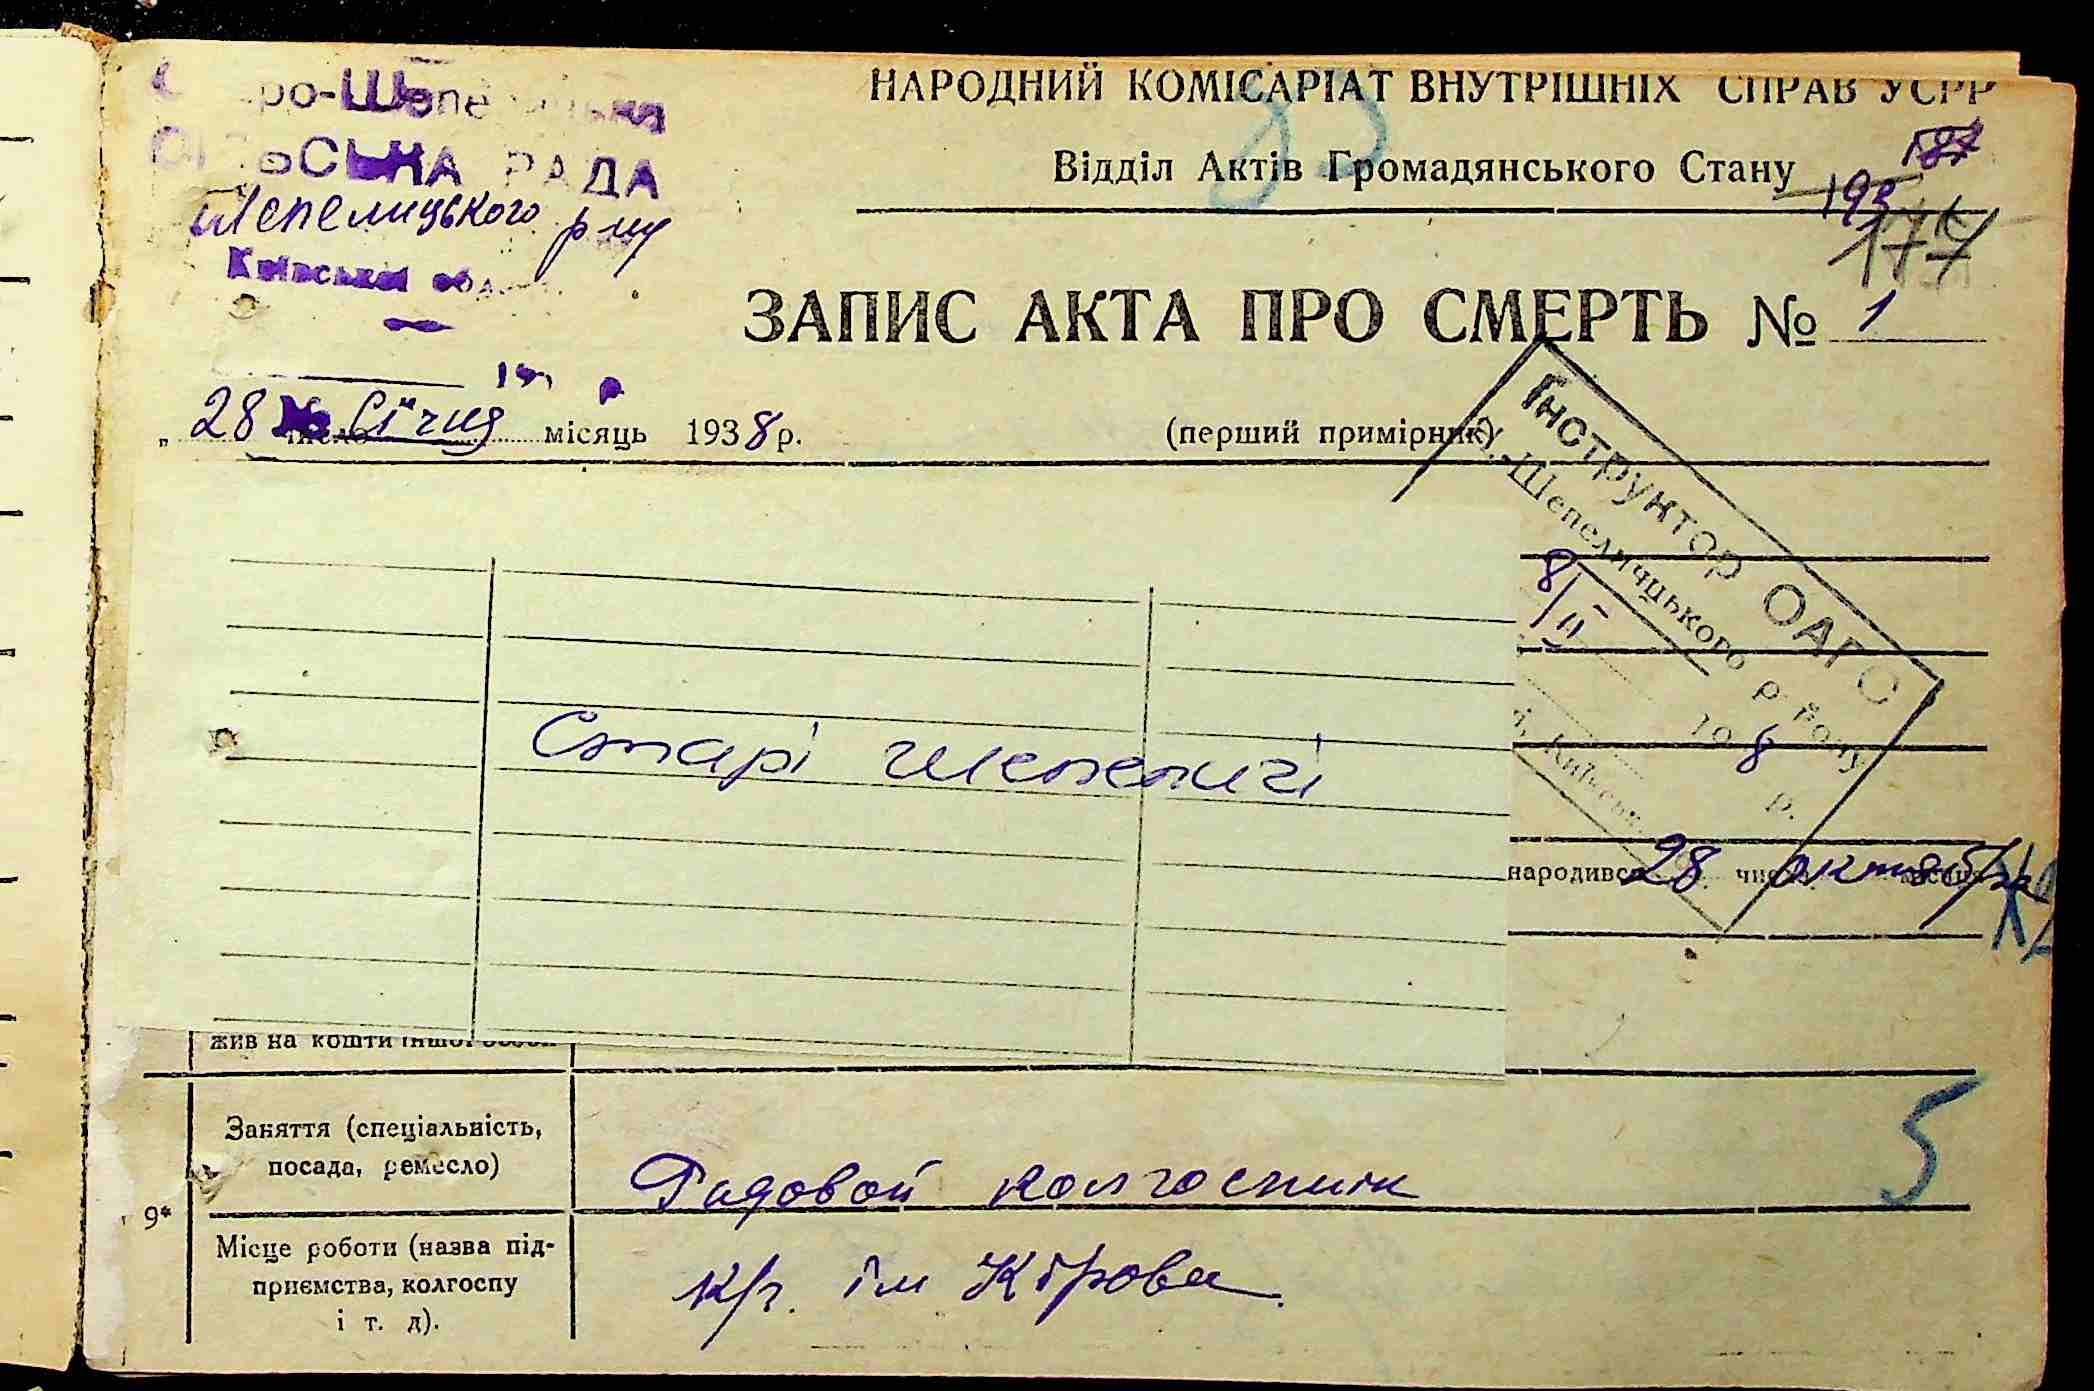 Старо-Шепелицька
СІЛЬСЬКА РАДА
Шепелицького р-ну
Київської обл.
НАРОДНИЙ КОМІСАРІАТ ВНУТРІШНІХ СПРАВ УСРР
Відділ Актів Громадянського Стану
193
177
ЗАПИС АКТА ПРО СМЕРТЬ № 1
„ 28 число Січня місяць 1938 р. (перший примірник)
Інструктор ОАГС
Н.-Шепелицького району
8/II 1938 р.
Київськ.
Старі шепеличі
народився 28 числа октября місяця
жив на кошти іншої особи
9* Заняття (спеціальність,
посада, ремесло)
Рядовой колгоспник
5
Місце роботи (назва під-
приємства, колгоспу
і т. д).
к/г. ім Кірова.